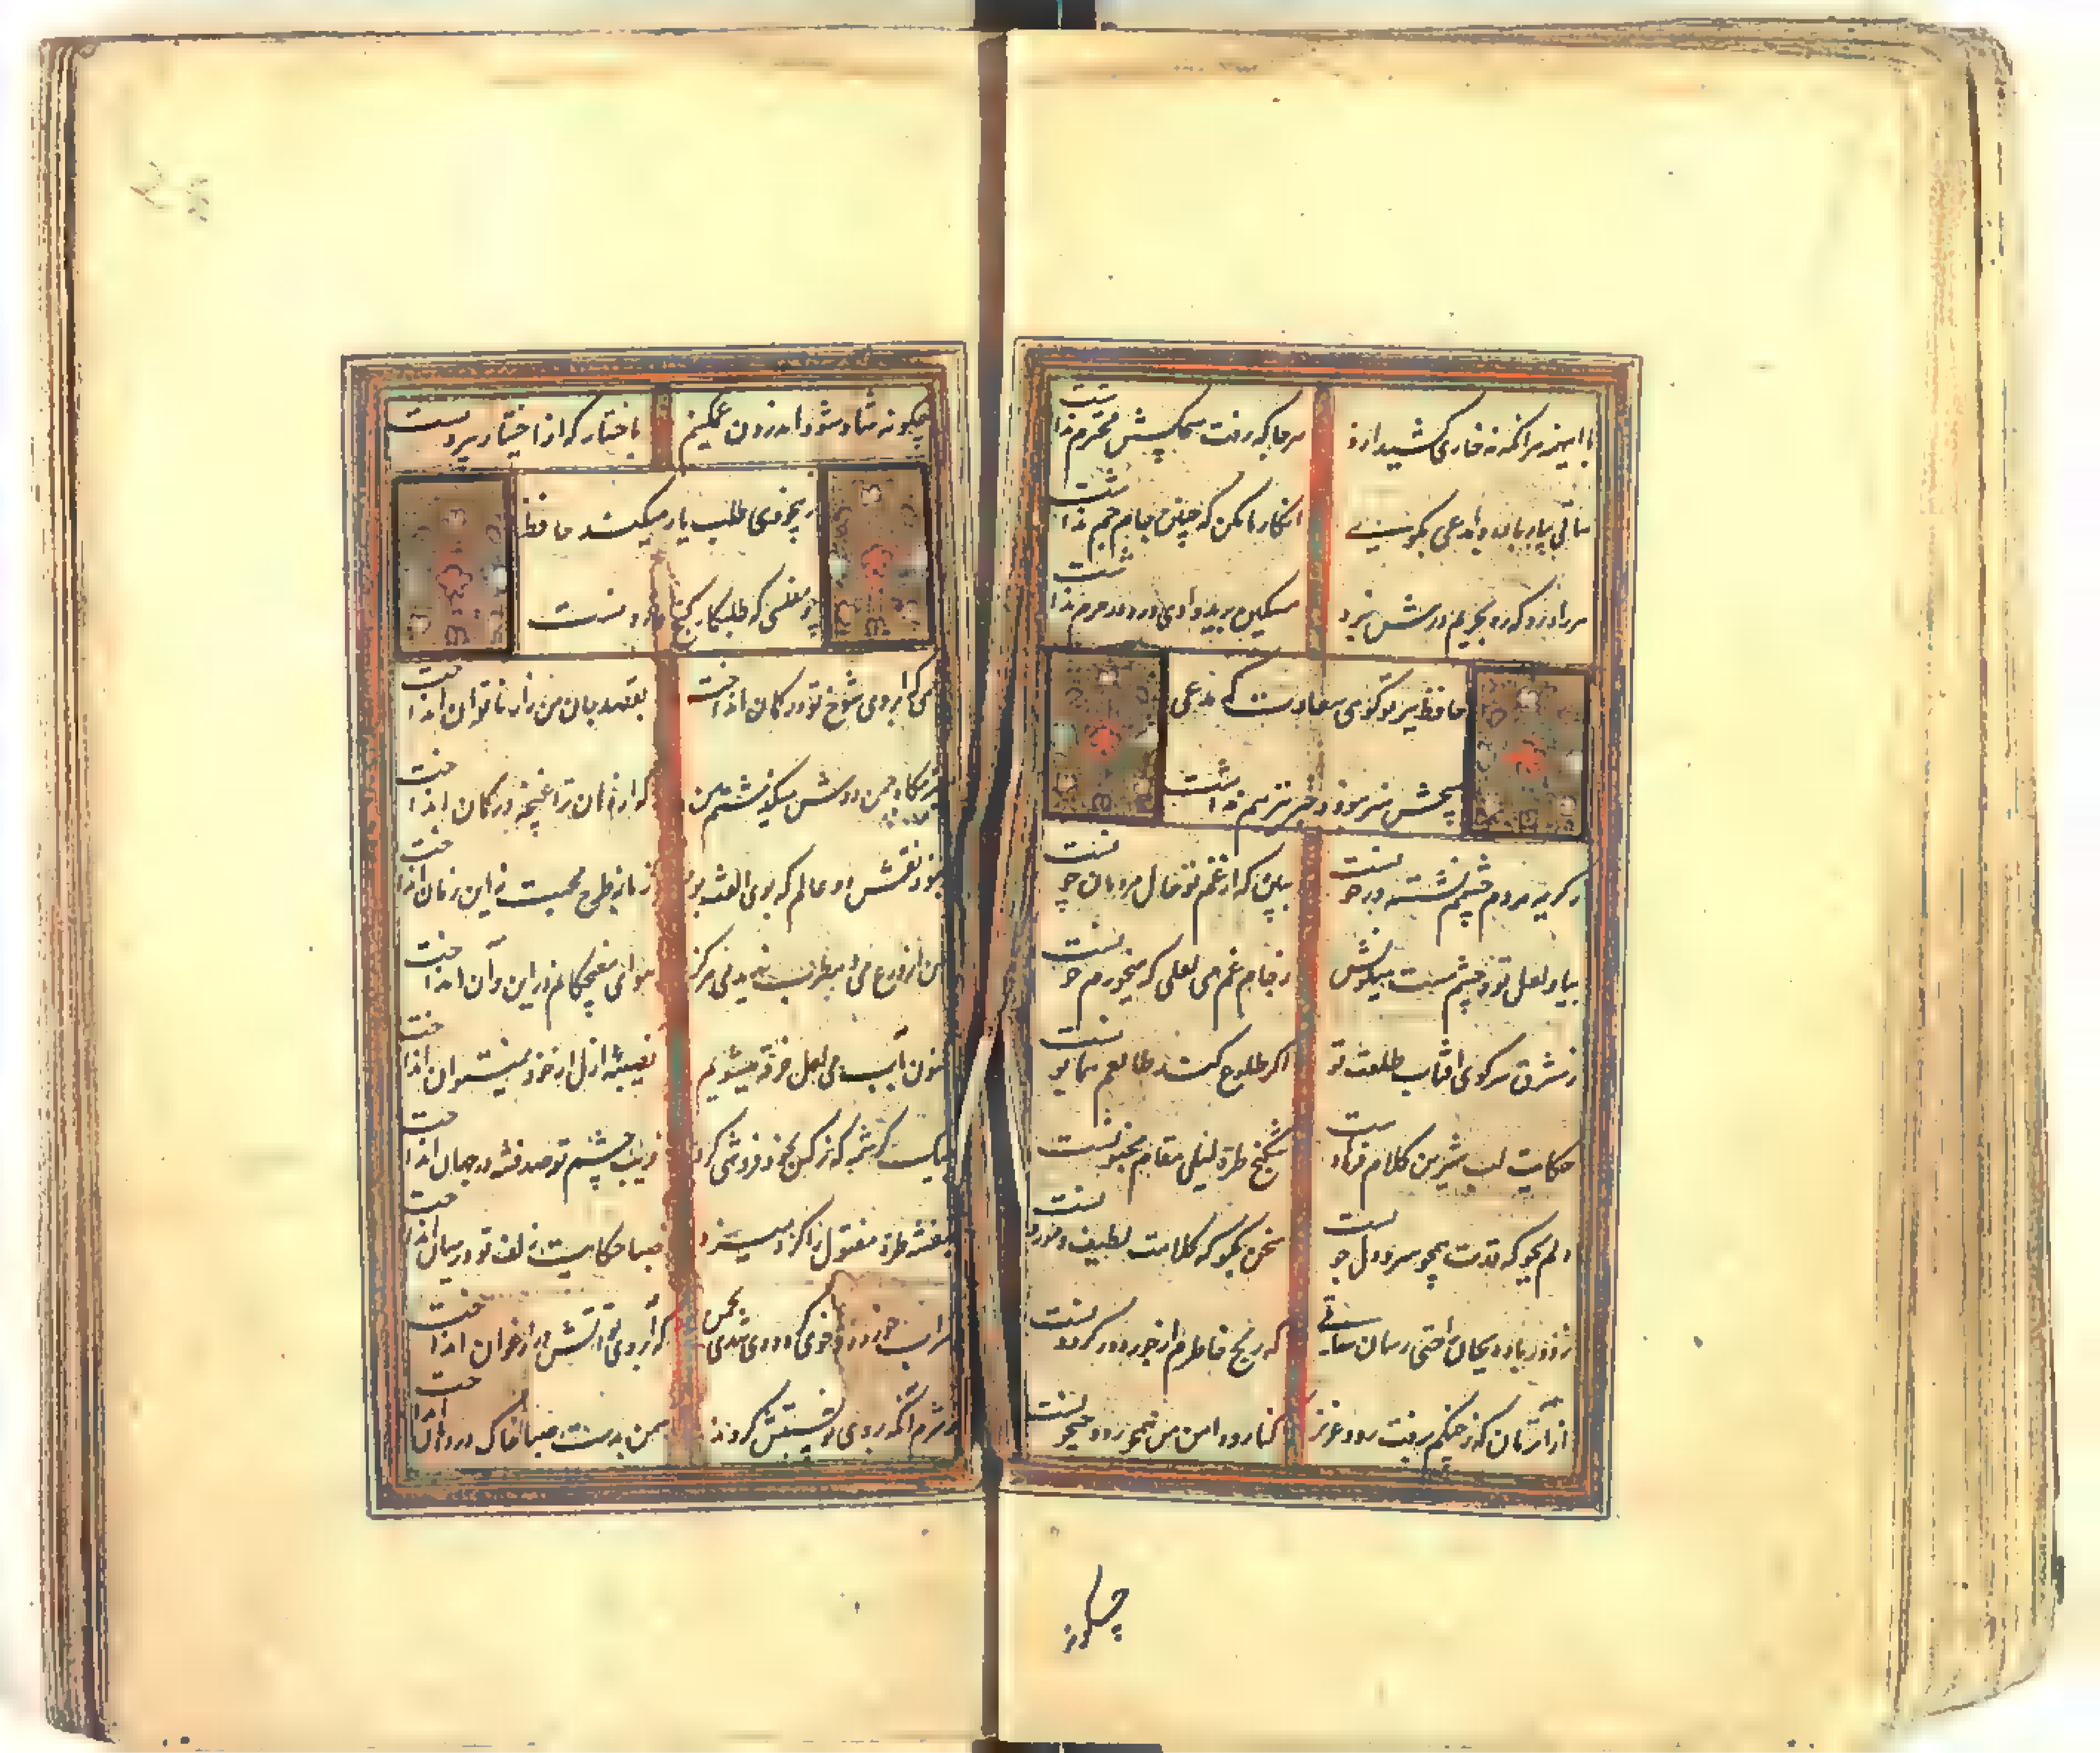 با اینهمه هر آنکه نه خواری کشید ازو هر جا که رفت هیچکسش محترم نداشت
ساقی بیار باده و با مدعی بگو انکار ما مکن که چنین جام جم نداشت
هر راهرو که ره بحریم درش نبرد مسکین برید وادی و ره در حرم نداشت
حافظ ببر تو گوی سعادت که مدعی
هیچش هنر نبود و خبر نیز هم نداشت
ز گریه مردم چشمم نشسته در خونست ببین که از غم تو حال مردمان چونست
بیاد لعل تو و چشم مست میگونش ز جام غم می لعلی که میخورم خونست
ز مشرق سر کوی آفتاب طلعت تو اگر طلوع کند طالعم همایونست
حکایت لب شیرین کلام فرهادست شکنج طره لیلی مقام مجنونست
دلم بجو که قدت همچو سرو دلجویست سخن بگو که کلامت لطیف و موزونست
ز دور باده بجان راحتی رسان ساقی که رنج خاطرم از جور دور گردونست
از آن زمان که ز چنگم برفت رود عزیز کنار دامن من همچو رود جیحونست
چکونه
چکونه شاد شود اندرون غمگینم باختیار که از اختیار بیرونست
ز بیخودی طلب یار میکند حافظ
چو مفلسی که طلبکار گنج قارونست
خمی که ابروی شوخ تو در کمان انداخت بقصد جان من زار ناتوان انداخت
ببزمگاه چمن دوش مست بگذشتم که از دهان تو ام غنچه در گمان انداخت
نبود نقش دو عالم که بوی الفت بود زمانه طرح محبت نه این زمان انداخت
من از ورع می و مطرب ندیدمی هرگز هوای مغبچگانم در این و آن انداخت
کنون بآب می لعل خرقه میشویم نصیبه ازل از خود نمیتوان انداخت
بیک کرشمه که نرگس بخود فروشی کرد فریب چشم تو صد فتنه در جهان انداخت
بنفشه طره مفتول را گره میزد صبا حکایت زلف تو در میان انداخت
شراب خورده و خوی کرده می شدی بچمن که آب روی تو آتش در ارغوان انداخت
ز شرم آنکه بروی تو نسبتش کردند سمن بدست صبا خاک در دهان انداخت